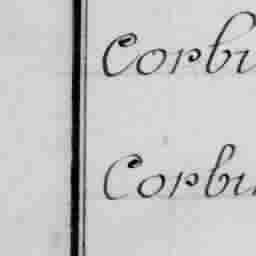 Corbi
Corbi